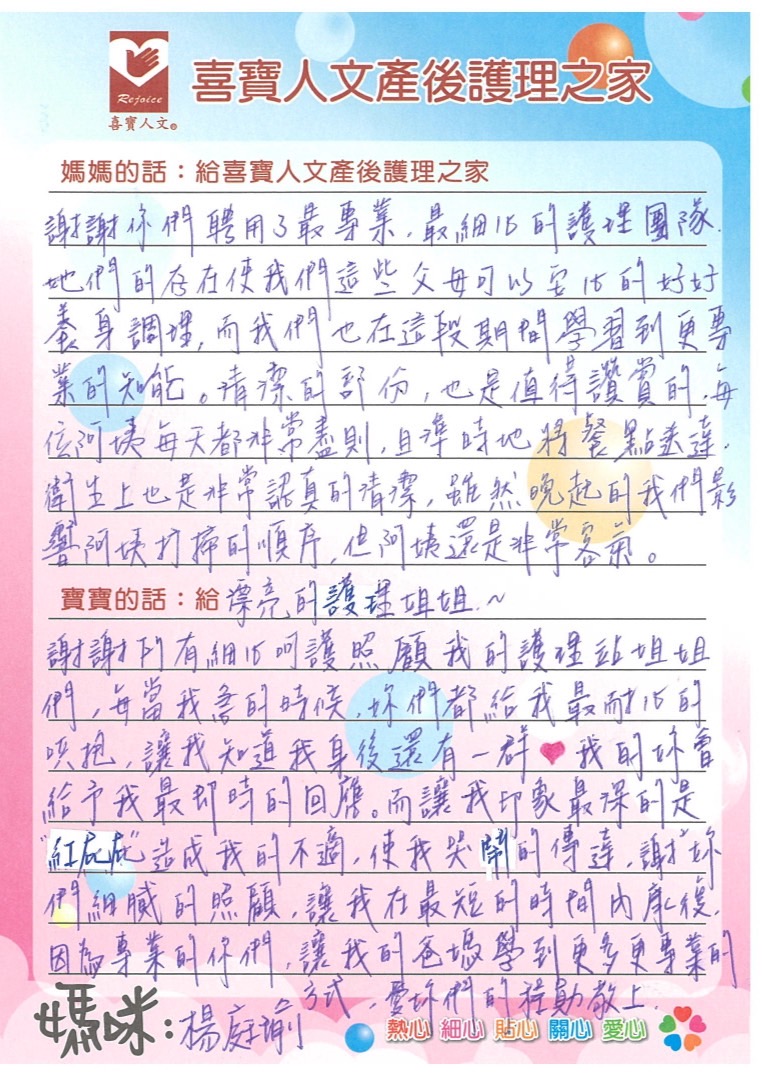 Rejoice
喜寶人文
喜寶人文產後護理之家
媽媽的話：給喜寶人文產後護理之家
謝謝你們聘用了最專業，最細心的護理團隊，
她們的存在使我們這些父母可以安心的好好
養身調理，而我們也在這段期間學習到更專
業的知能。清潔的部份，也是值得讚賞的，每
位阿姨每天都非常盡則，且準時地將餐點送達，
衛生上也是非常認真的清潔，雖然晚起的我們影
響阿姨打掃的順序，但阿姨還是非常客氣。
寶寶的話：給漂亮的護理姐姐~
謝謝所有細心呵護照顧我的護理站姐姐
們，每當我的時候，妳們都給我最耐心的
哄抱，讓我知道我身後還有一群♥我的妳會
給予我最即時的回應。而讓我印象最深的是
"紅屁屁"造成我的不適，使我哭鬧的傳達，謝謝妳
們細膩的照顧，讓我在最短的時間內康復，
因為專業的你們，讓我的爸媽學到更多更專業的
方式，愛妳們的 敬上
媽咪：楊庭瑜
熱心 細心 貼心 關心 愛心